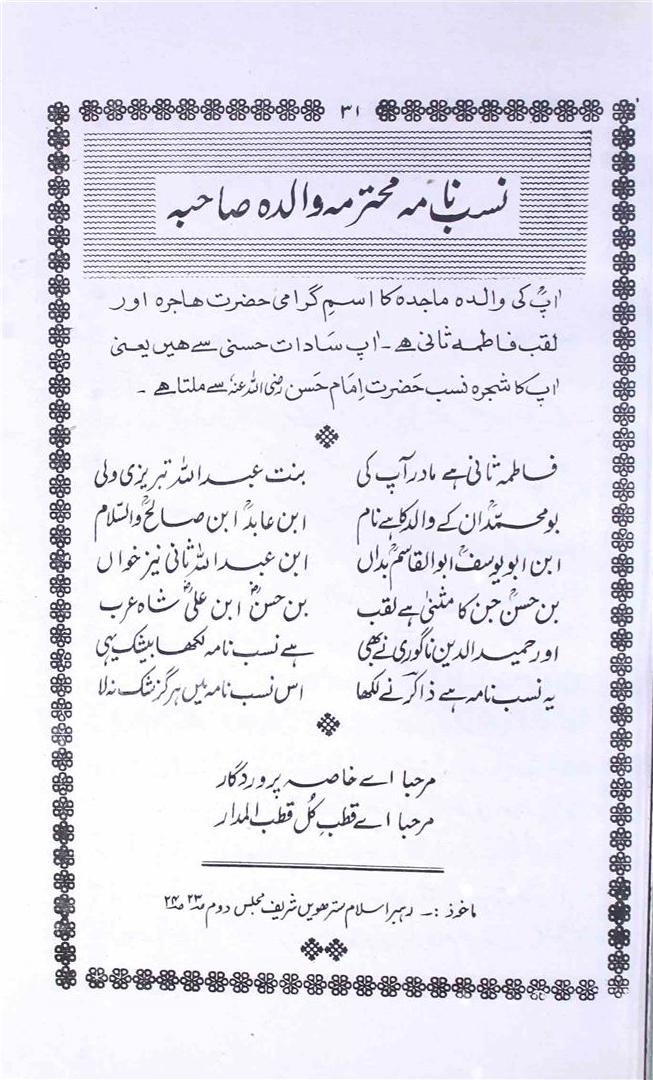 ۳۱
نسب نامہ محترمہ والدہ صاحبہ
آپؒ کی والدہ ماجدہ کا اسم گرامی حضرت ھاجرہ اور
لقب فاطمہ ثانی ھے ۔ آپ سادات حسنی سے ھیں یعنی
آپ کا شجرہ نسب حضرت اِمام حَسن رضی اللہ عنہٗ سے ملتا ھے ۔
فاطمہ ثانی ہے مادر آپ کی بنت عبداللہ تبریزی ولی
بو محمدؒ ان کے والد کا ہے نام ابن عابدؒ ابن صالحؒ والسّلام
ابن ابو یوسفؒ ابوالقاسمؒ بداں ابن عبداللہ ثانی نیز خواں
بن حسنؒ جن کا مثنیٰ ہے لقب بن حسنؓ ابن علیؓ شاہ عرب
اور حمید الدین ناگوری نے بھی ہے نسب نامہ لکھا بیشک یہی
یہ نسب نامہ ہے ذاکر نے لکھا اس نسب نامہ میں ہرگز شک نہ لا
مرحبا اے خاصہ پروردگار
مرحبا اے قطب کُل قطب المدار
ماخوذ :۔ رہبر اسلام سترھویں شریف مجلس دوم ص۲۳ ص۲۴